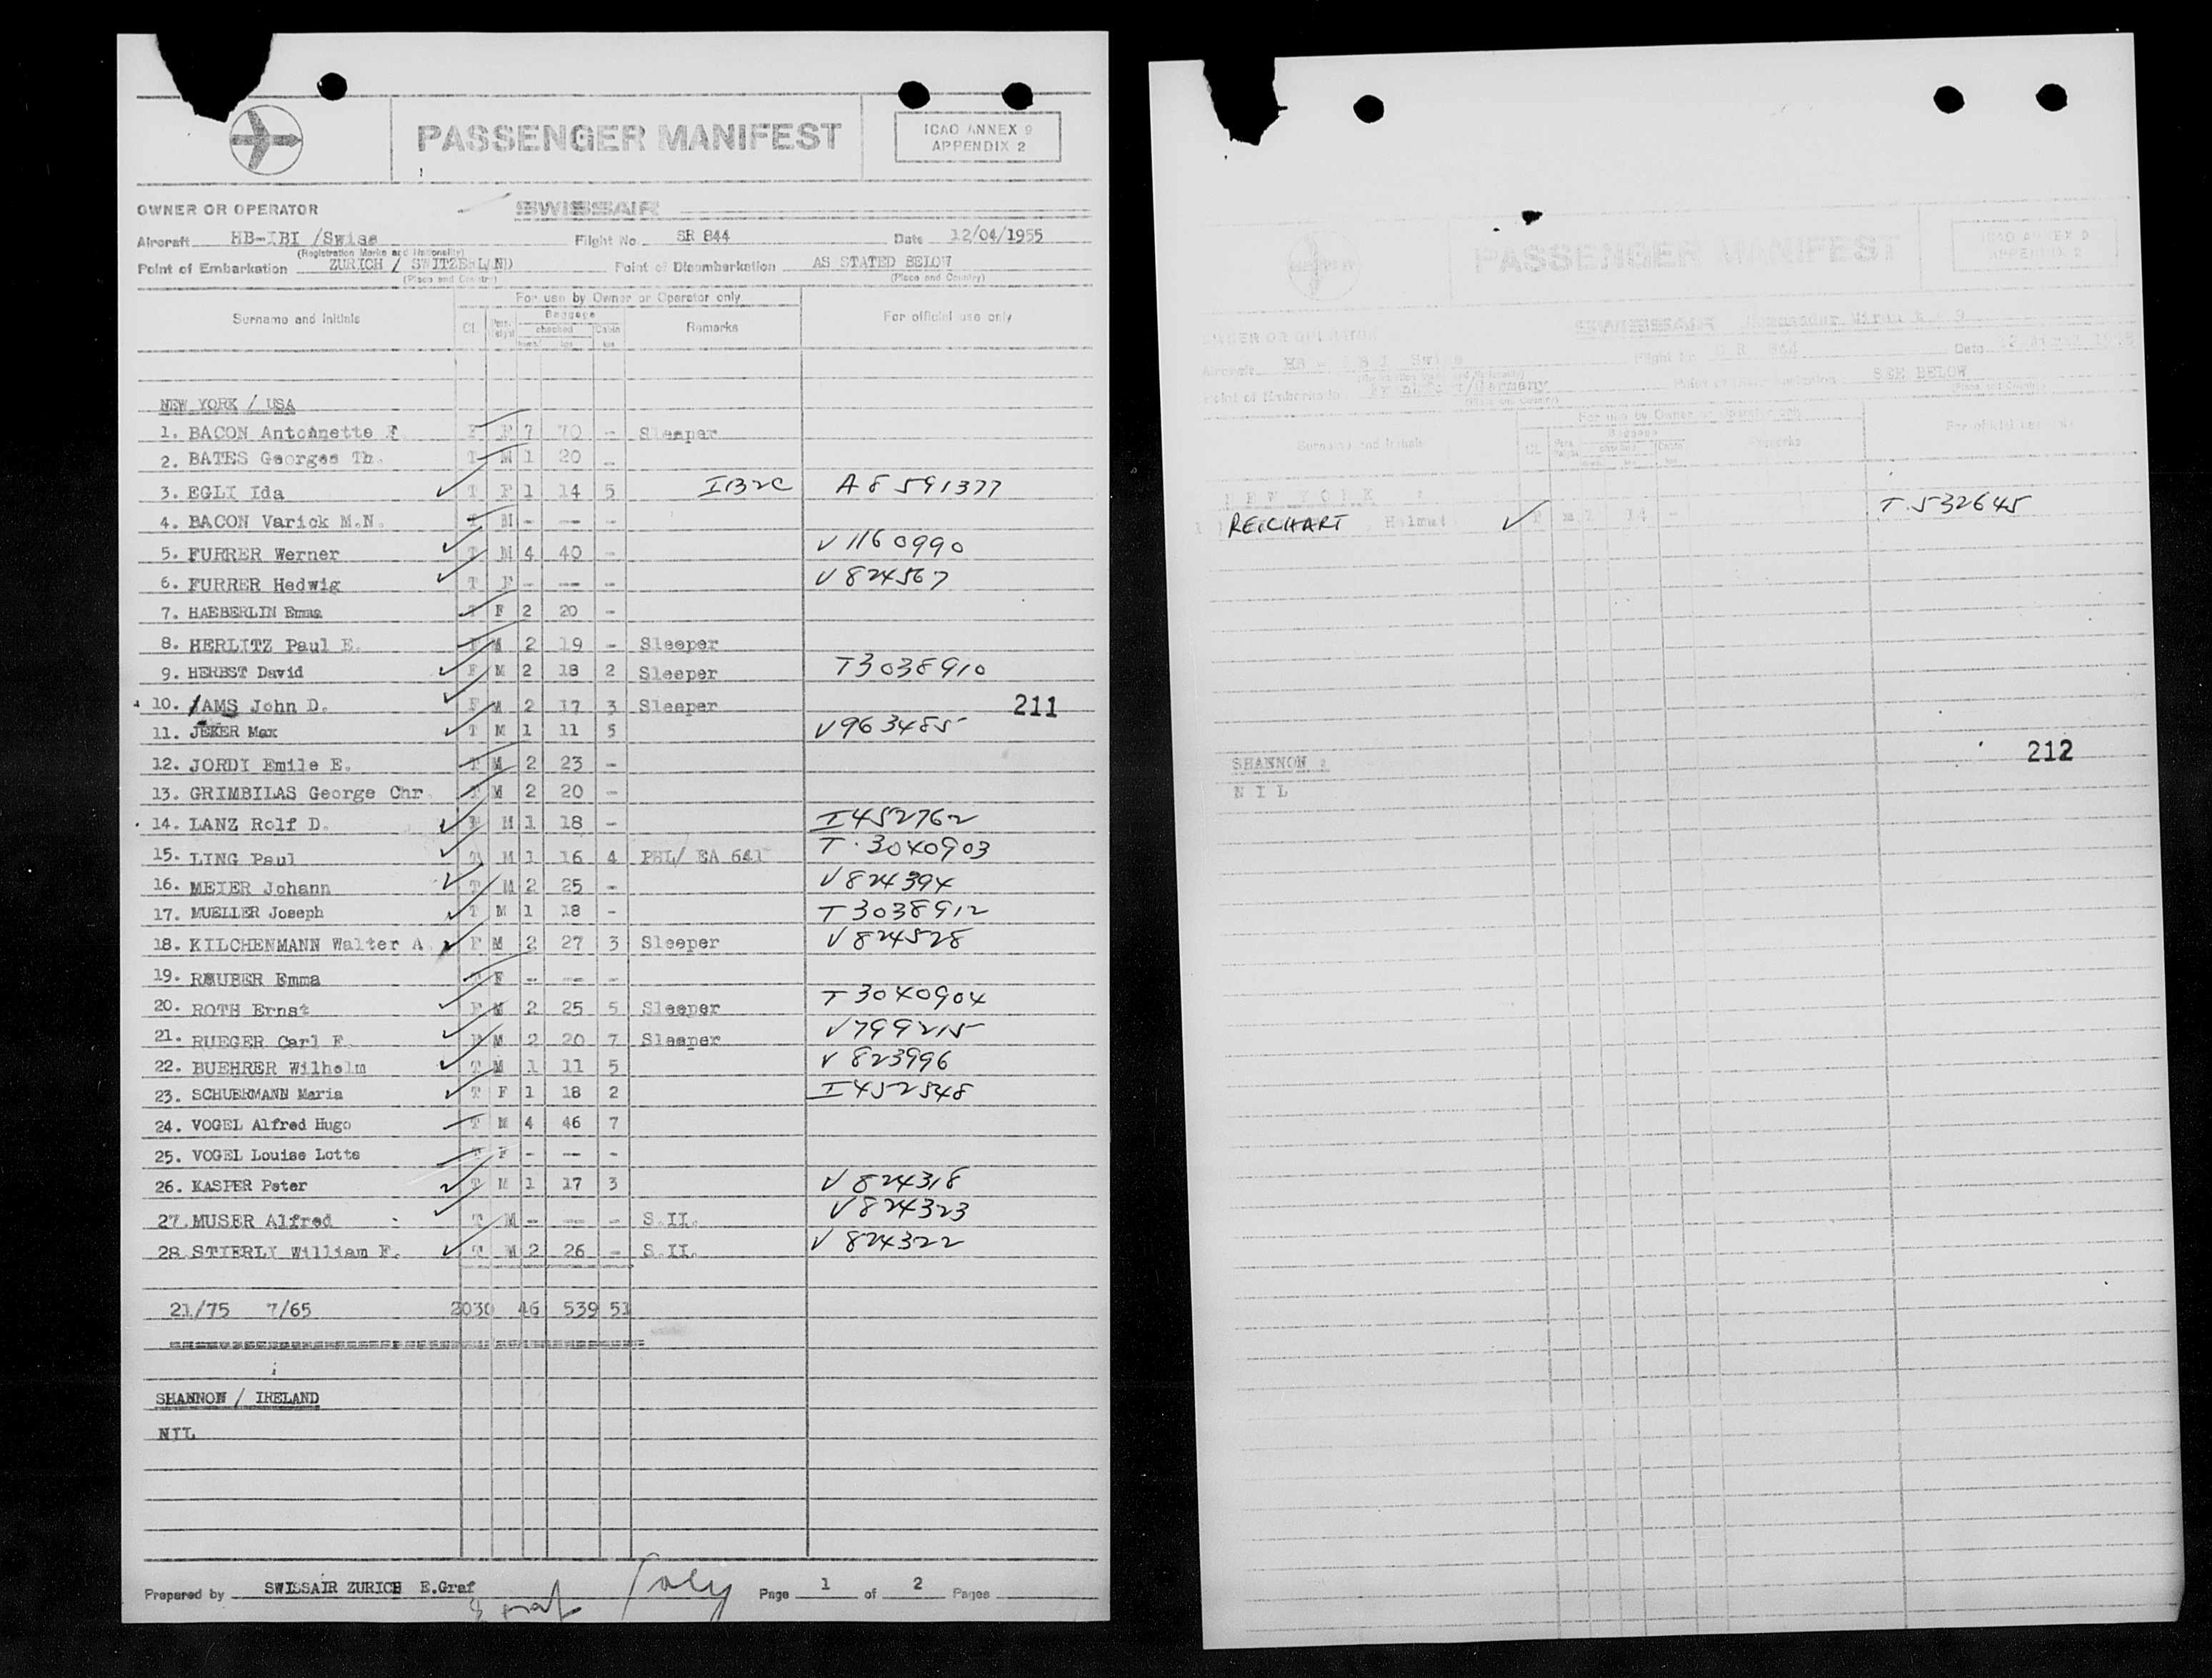 PASSENGER MANIFEST
ICAO ANNEX 9
APPENDIX 2
OWNER OR OPERATOR SWISSAIR
Aircraft HB-IBI /Swiss Flight No. SR 844 Date 12/04/1955
(Registration Marks and Nationality)
Point of Embarkation ZURICH / SWITZERLAND Point of Disembarkation AS STATED BELOW
(Place and Country) (Place and Country)
For use by Owner or Operator only
Surname and initials Cl. Baggage checked Cabin Remarks For official use only
NEW YORK / USA
1. BACON Antoinette F F F 7 70 - Sleeper
2. BATES Georges Th. T M 1 20 -
3. EGLI Ida T F 1 14 5 I132C A8 591377
4. BACON Varick M.N. T M - --- -
5. FURRER Werner T M 4 40 - V1160990
6. FURRER Hedwig T F - --- - V824567
7. HAEBERLIN Emma T F 2 20 -
8. HERLITZ Paul E. F M 2 19 - Sleeper
9. HERBST David F M 2 18 2 Sleeper T3038910
10. IAMS John D. F M 2 17 3 Sleeper 211
11. JEKER Max T M 1 11 5 V963485
12. JORDI Emile E. T M 2 23 -
13. GRIMBILAS George Chr. T M 2 20 -
14. LANZ Rolf D. F M 1 18 - I452762
15. LING Paul T M 1 16 4 PHL/ EA 641 T.3040903
16. MEIER Johann T M 2 25 - V824394
17. MUELLER Joseph T M 1 18 - T3038912
18. KILCHENMANN Walter A. F M 2 27 3 Sleeper V824528
19. RAUBER Emma T F - --- -
20. ROTH Ernst F M 2 25 5 Sleeper T3040904
21. RUEGER Carl F. F M 2 20 7 Sleeper V799215
22. BUEHRER Wilhelm T M 1 11 5 V 823996
23. SCHUERMANN Maria T F 1 18 2 I452548
24. VOGEL Alfred Hugo T M 4 46 7
25. VOGEL Louise Lotte T F - -- -
26. KASPER Peter T M 1 17 3 V824318
27. MUSER Alfred T M - --- - S.II. V824323
28. STIERLI William F. T M 2 26 - S.II. V824322
21/75 7/65 2030 46 539 51
SHANNON / IRELAND
NIL
Prepared by SWISSAIR ZURICH E.Graf Page 1 of 2 Pages
PASSENGER MANIFEST
ICAO ANNEX 9
APPENDIX 2
OWNER OR OPERATOR SWISSAIR
Aircraft HB - IBI Swiss Flight No. SR 844 Date
Point of Embarkation Frankfurt/Germany Point of Disembarkation SEE BELOW
For use by Owner or Operator only
Surname and initials Cl. Baggage checked Cabin Remarks For official use only
NEW YORK :
REICHART, Helmut 14 - T.532645
212
SHANNON :
N I L